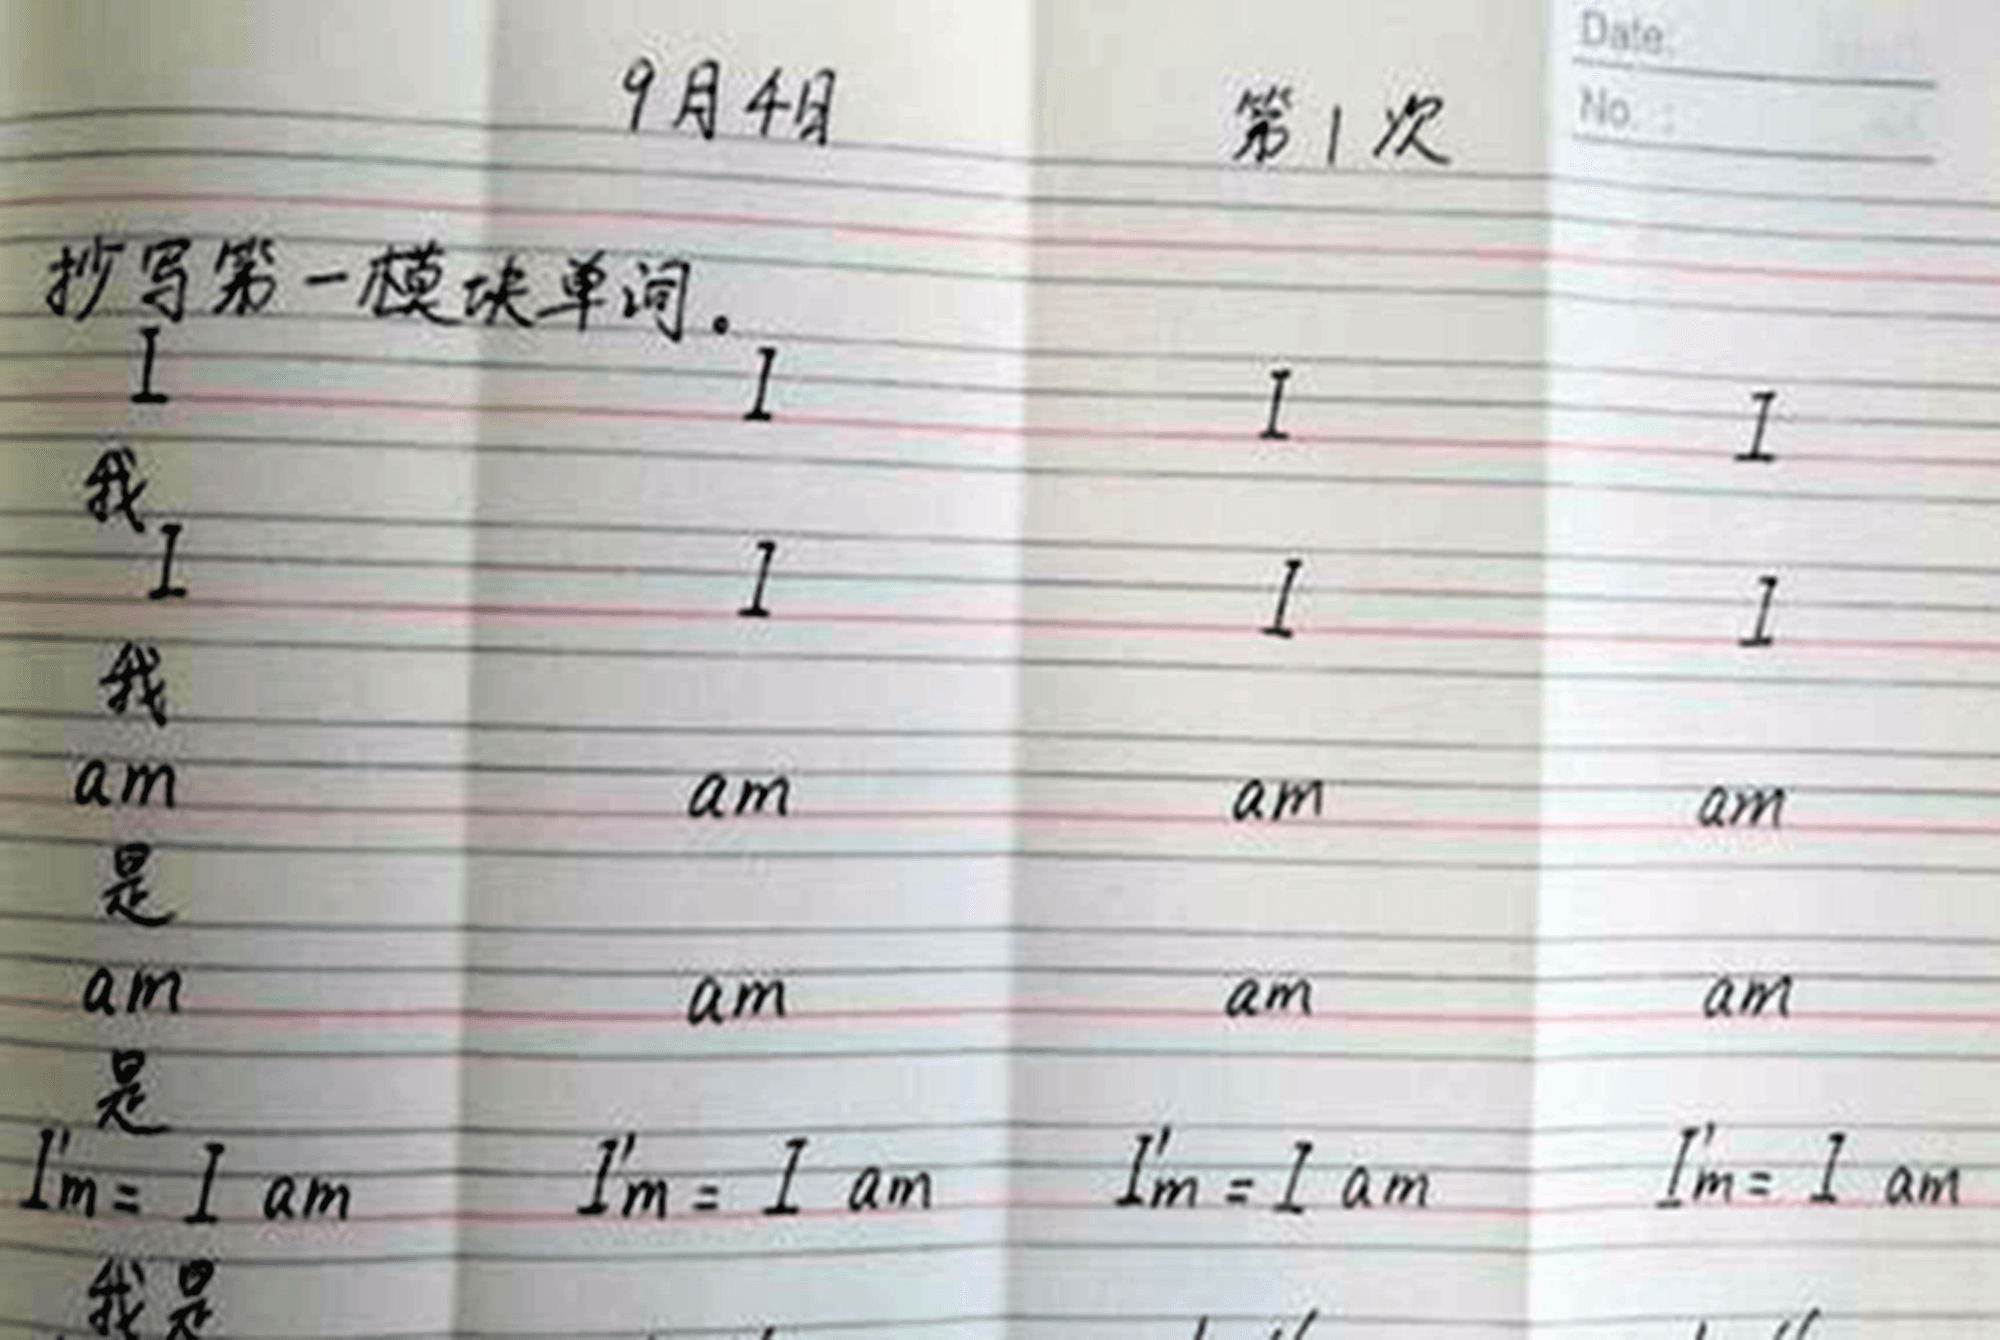 Date:
No. :
9月4日 第1次
抄写第一模块单词。
I I I I
我
I I I I
我
am am am am
是
am am am am
是
I'm = I am I'm = I am I'm = I am I'm = I am
我是